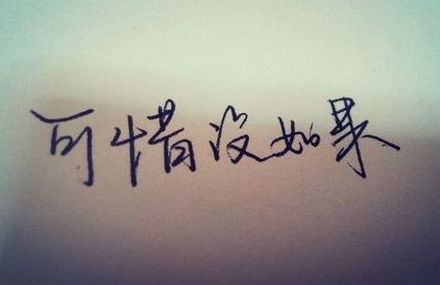 可惜没如果